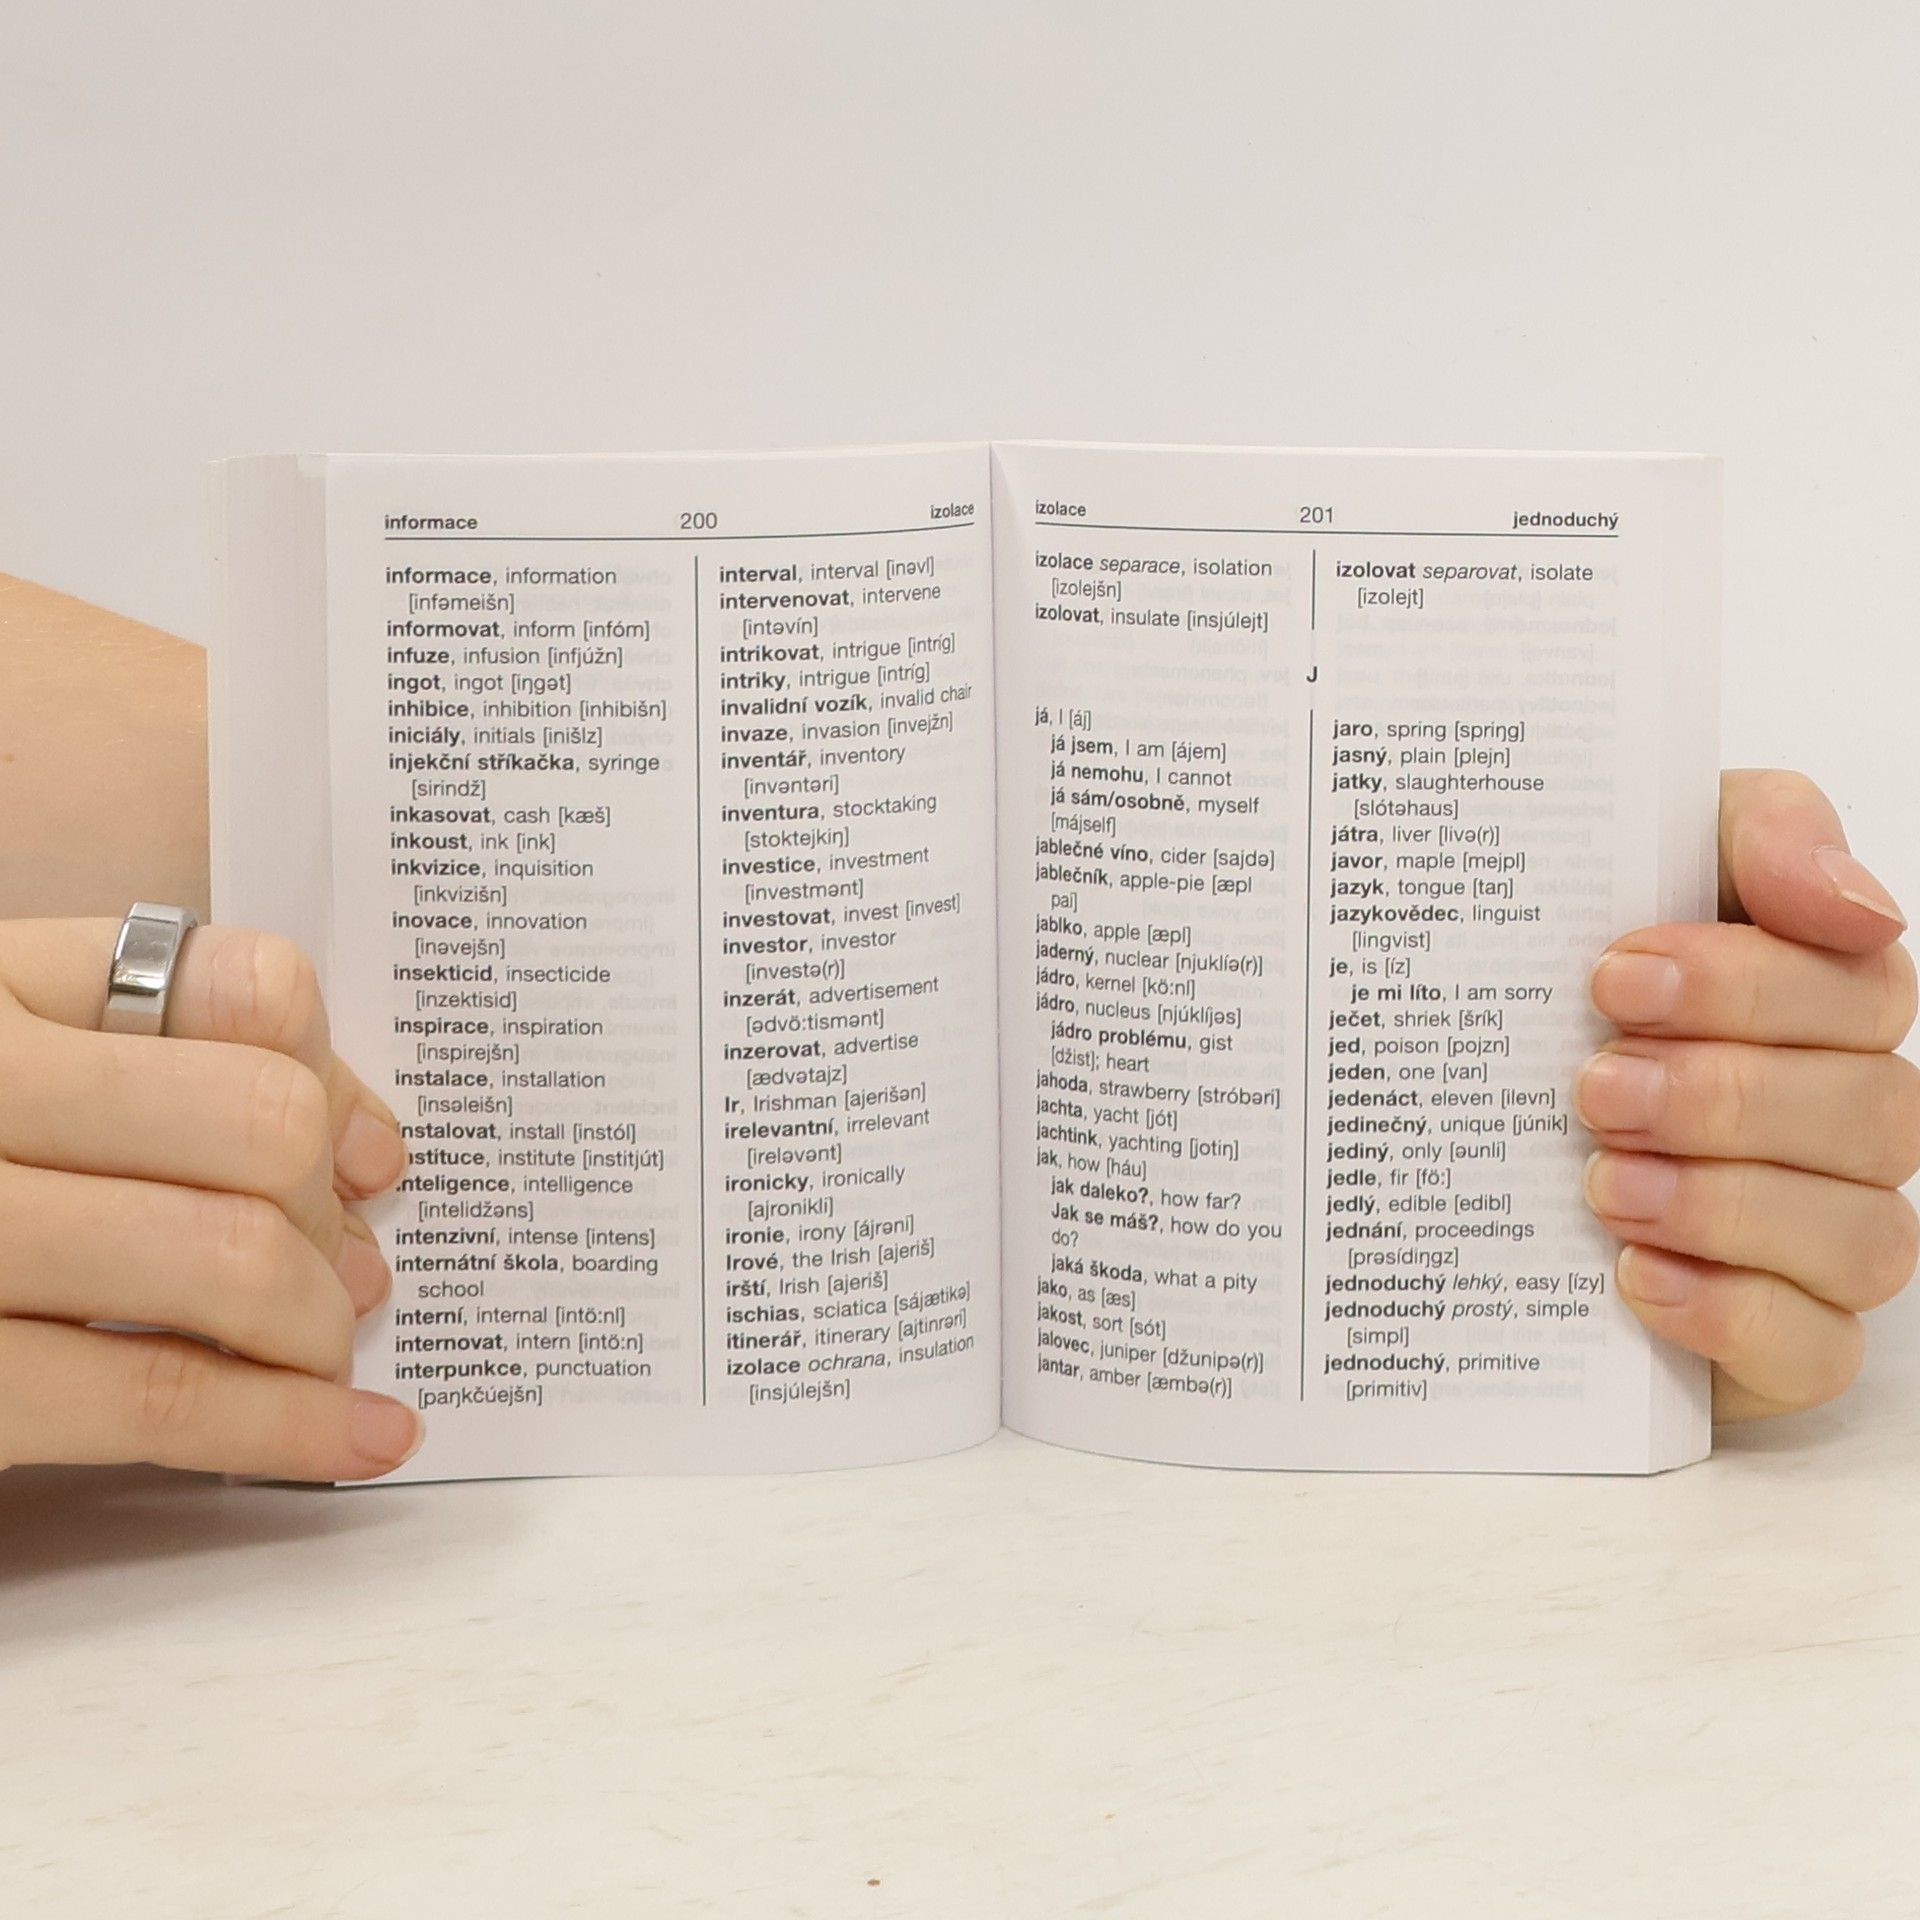 informace 200 izolace
informace, information
[infəmeišn]
informovat, inform [infóm]
infuze, infusion [infjúžn]
ingot, ingot [iŋgət]
inhibice, inhibition [inhibišn]
iniciály, initials [inišlz]
injekční stříkačka, syringe
[sirindž]
inkasovat, cash [kæš]
inkoust, ink [ink]
inkvizice, inquisition
[inkvizišn]
inovace, innovation
[inəvejšn]
insekticid, insecticide
[inzektisid]
inspirace, inspiration
[inspirejšn]
instalace, installation
[insəleišn]
instalovat, install [instól]
stituce, institute [institjút]
nteligence, intelligence
[intelidžəns]
intenzivní, intense [intens]
internátní škola, boarding
school
interní, internal [intö:nl]
internovat, intern [intö:n]
interpunkce, punctuation
[paŋkčúejšn]
interval, interval [inəvl]
intervenovat, intervene
[intəvín]
intrikovat, intrigue [intríg]
intriky, intrigue [intríg]
invalidní vozík, invalid chair
invaze, invasion [invejžn]
inventář, inventory
[invəntəri]
inventura, stocktaking
[stoktejkiŋ]
investice, investment
[investmənt]
investovat, invest [invest]
investor, investor
[investə(r)]
inzerát, advertisement
[ədvö:tismənt]
inzerovat, advertise
[ædvətajz]
Ir, Irishman [ajerišən]
irelevantní, irrelevant
[ireləvənt]
ironicky, ironically
[ajronikli]
ironie, irony [ájrəni]
Irové, the Irish [ajeriš]
irští, Irish [ajeriš]
ischias, sciatica [sájætikə]
itinerář, itinerary [ajtinrəri]
izolace ochrana, insulation
[insjúlejšn]
izolace 201 jednoduchý
izolace separace, isolation
[izolejšn]
izolovat, insulate [insjúlejt]
izolovat separovat, isolate
[izolejt]
J
já, I [áj]
já jsem, I am [ájem]
já nemohu, I cannot
já sám/osobně, myself
[májself]
jablečné víno, cider [sajdə]
jablečník, apple-pie [æpl
pai]
jablko, apple [æpl]
jaderný, nuclear [njuklíə(r)]
jádro, kernel [kö:nl]
jádro, nucleus [njúklíjəs]
jádro problému, gist
[džist]; heart
jahoda, strawberry [stróbəri]
jachta, yacht [jót]
jachtink, yachting [jotiŋ]
jak, how [háu]
jak daleko?, how far?
Jak se máš?, how do you
do?
jaká škoda, what a pity
jako, as [æs]
jakost, sort [sót]
jalovec, juniper [džunipə(r)]
jantar, amber [æmbə(r)]
jaro, spring [spriŋg]
jasný, plain [plejn]
jatky, slaughterhouse
[slótəhaus]
játra, liver [livə(r)]
javor, maple [mejpl]
jazyk, tongue [taŋ]
jazykovědec, linguist
[lingvist]
je, is [íz]
je mi líto, I am sorry
ječet, shriek [šrík]
jed, poison [pojzn]
jeden, one [van]
jedenáct, eleven [ilevn]
jedinečný, unique [júnik]
jediný, only [əunli]
jedle, fir [fö:]
jedlý, edible [edibl]
jednání, proceedings
[prəsídiŋgz]
jednoduchý lehký, easy [ízy]
jednoduchý prostý, simple
[simpl]
jednoduchý, primitive
[primitiv]